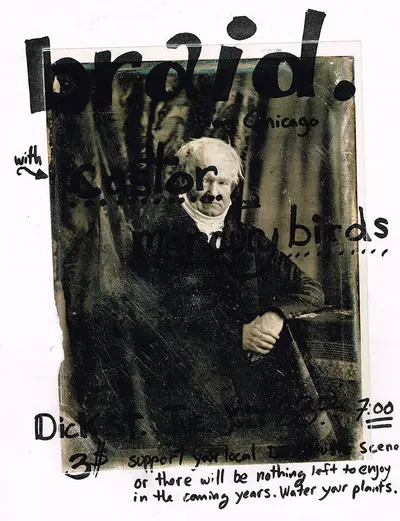 braid.
Chicago
with
castor
birds
Dick St. 7:00
3$ support your local Music Scene
or there will be nothing left to enjoy
in the coming years. Water your plants.